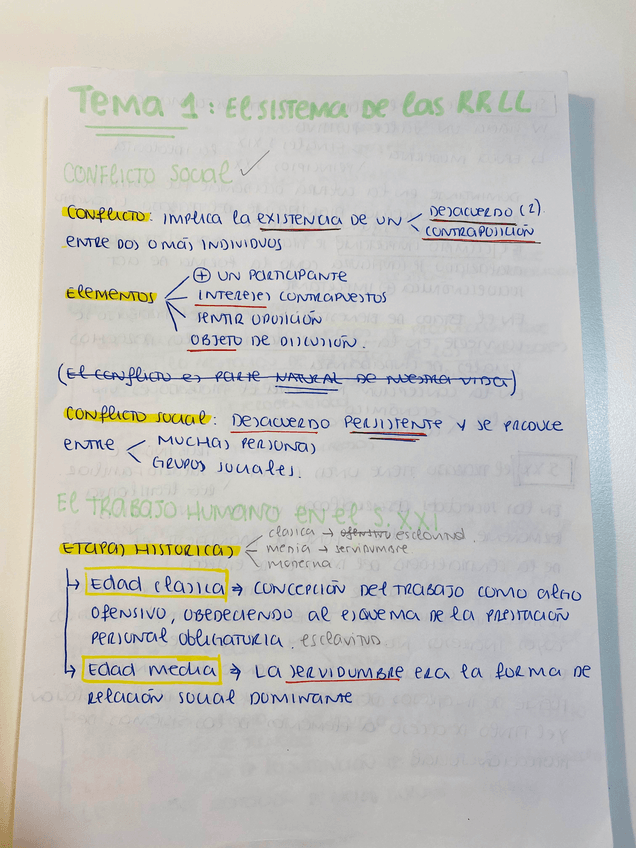 Tema 1: El sistema de las RRLL
Conflicto social ✓
Conflicto: implica la existencia de un < desacuerdo (2)
contraposición
entre dos o más individuos
Elementos
⊕ un participante
intereses contrapuestos
sentir oposición
objeto de discusión.
(El conflicto es parte natural de nuestra vida)
Conflicto social: desacuerdo persistente y se produce
entre < muchas personas
grupos sociales.
El trabajo humano en el S. XXI
Etapas historicas
clasica → ofensivo esclavitud.
media → servidumbre
moderna
→ Edad clasica ⇒ concepción del trabajo como algo
ofensivo, obedeciendo al esquema de la prestación
personal obligatoria. esclavitud
→ Edad media ⇒ La servidumbre era la forma de
relación social dominante